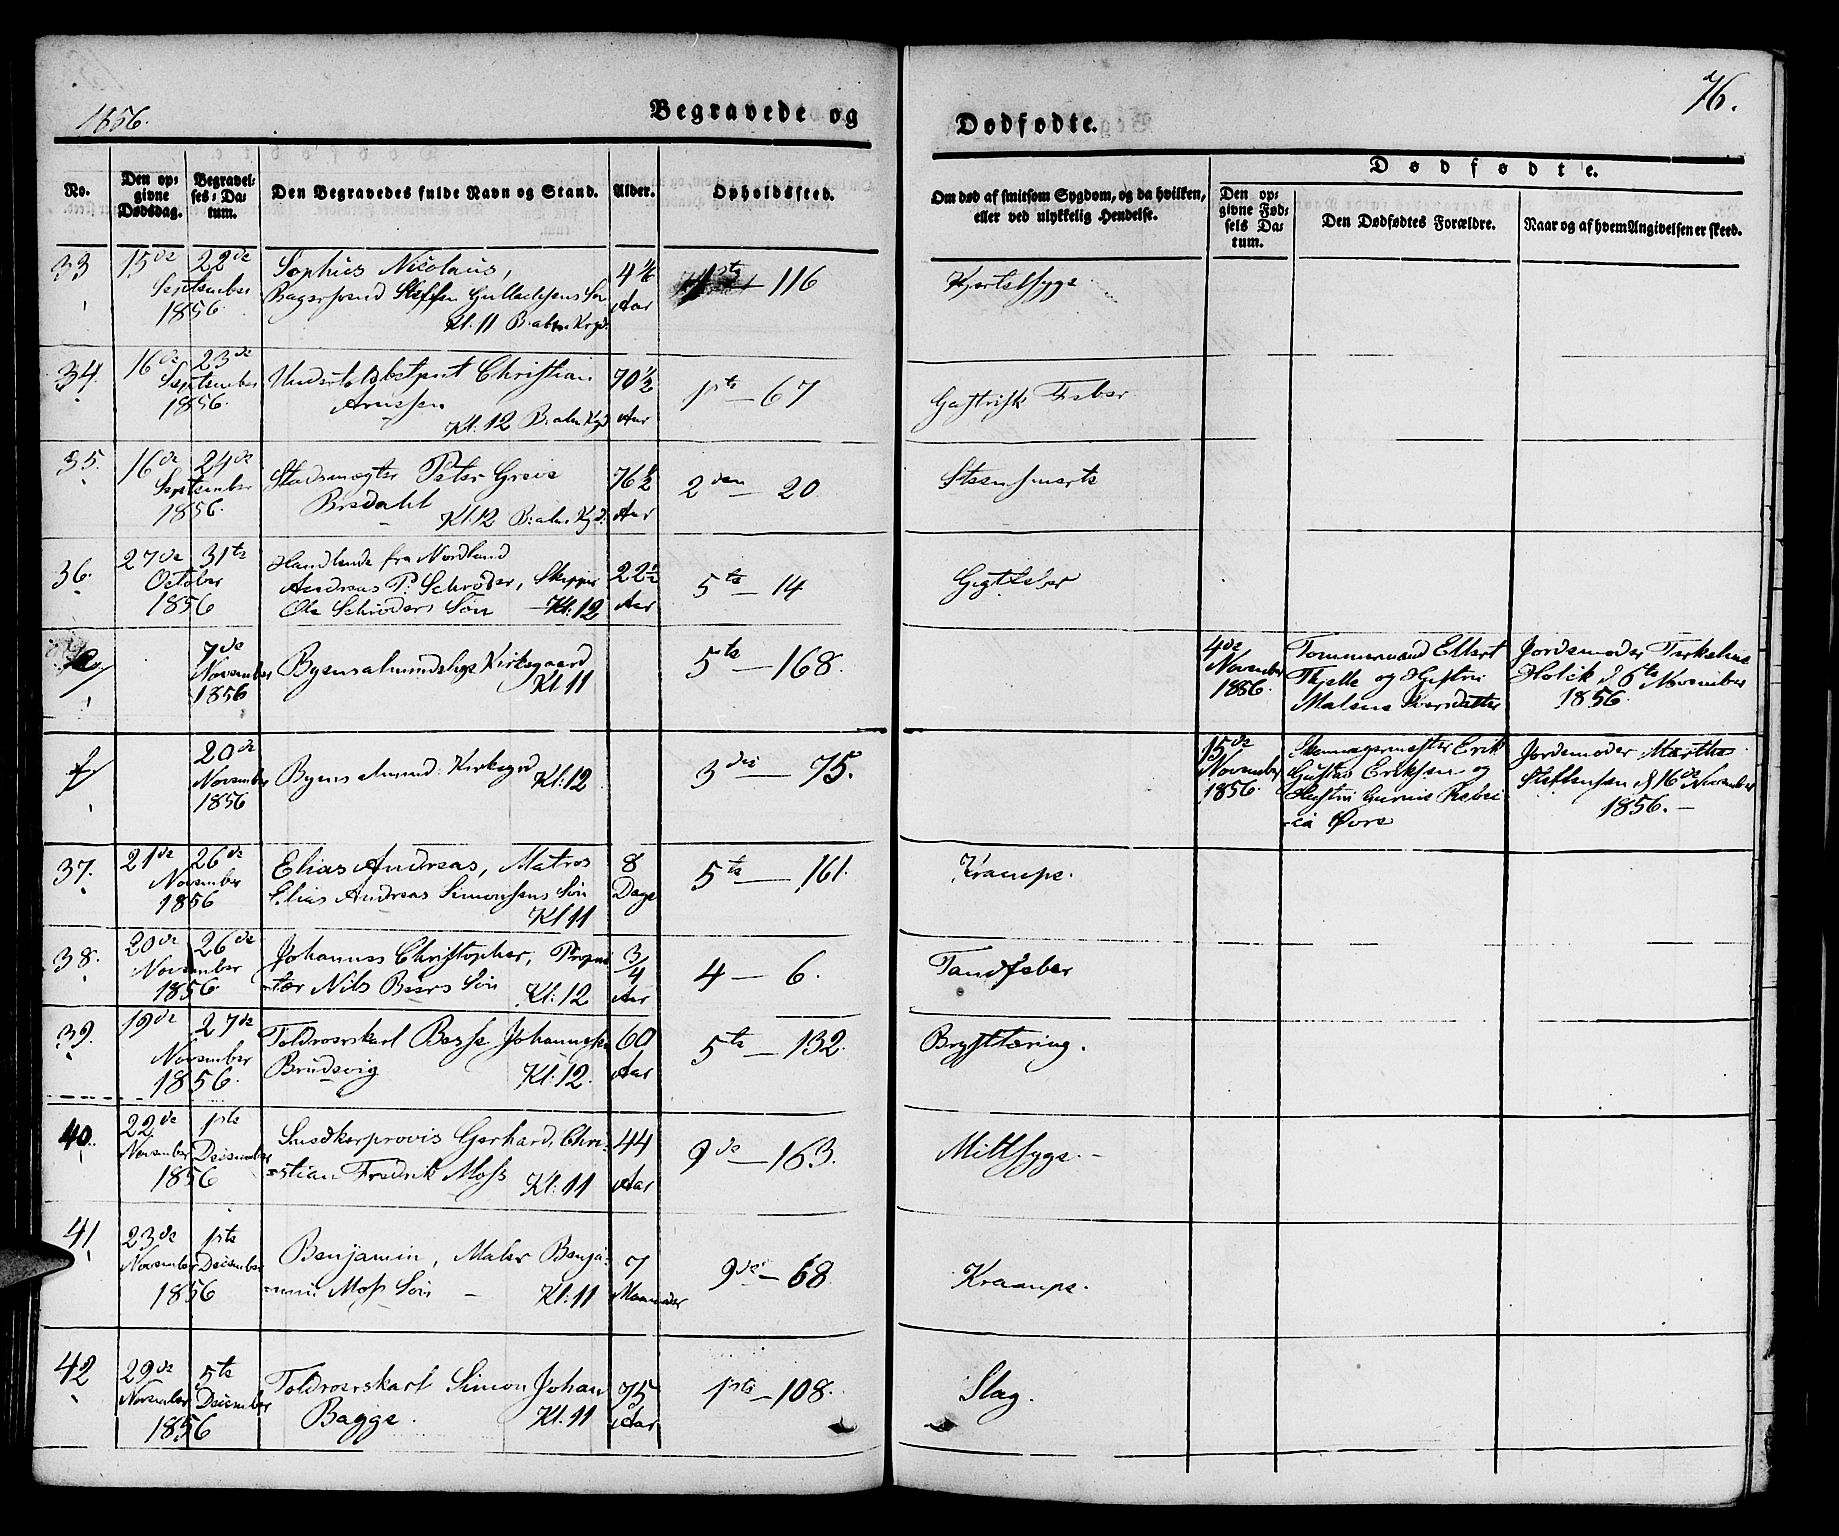 1856.
Begravede og
Dødfødte.
76.
No.
Den op-
givne
Dødsdag.
Begravel-
ses-Da-
tum.
Den Begravedes fulde Navn og Stand.
Alder.
Opholdssted.
Om død af smitsom Sygdom, og da hvilken,
eller ved ulykkelig Hendelse.
Dødfødte.
Den op-
givne Fød-
sels Da-
tum.
Den Dødfødtes Forældre.
Naar og af hvem Angivelsen er skeed.
33 15de 22de
September
1856.
Sophus Nicolaus,
Bagersvend Steffen Gullachsens Søn
Kl: 11
4 1/6
Aar
116
Kjertelsyge
34. 16de 23de
September
1856.
Undertoldbetjent Christian
Arnesen
Kl: 12
70 1/2
Aar
1ste — 67
Gastrisk Feber
35. 16de 24de
September
1856.
Stadsmægler Peter Greve
Bredahl
Kl: 12
76 1/2
Aar
2den — 20
Steensmerte
36. 27de 31te
October
1856
Handlende fra Nordland
Andreas P. Schrøder, Skipper
Ole Schrøders Søn Kl: 12
22 1/2
Aar
5te — 14
Gigtfeber
e/
7de
November
1856
Byens almindelige Kirkegaard
Kl 11
5te — 168.
4de
November
1856.
Tømmermand Ellert
Tjelle og Hustru
Malene Iversdatter
Jordemoder Terkeline
Holck d. 6te November
1856.
f/
20de
November
1856
Byens almind: Kirkegrd Kl: 12
3die — 75.
15de
November
1856.
Erik
Gustav Eriksen og
Hustru Gurine Rebec-
ca Øvre
Jordemoder Martha
Steffensen d 16de November
1856. —
37. 21de 26de
November
1856
Elias Andreas, Matros
Elias Andreas Simonsens Søn
Kl 11
8
Dage
5te — 161.
Krampe.
38. 20de 26de
November
1856.
Johannes Christopher, Propri-
-tær Nils Beers Søn Kl: 12
3/4
Aar
4 — 6.
Tandfeber
39. 19de 27de
November
1856.
Toldroerskarl Bersse Johannesen
Brudevig Kl: 12.
60
Aar
5te — 132.
Brysttæring.
40. 22de 1ste
November December
1856
Snedkerprovis Gerhard Chri-
-stian Fredrik Moss Kl: 11
44
Aar
9de — 163.
Miltsyge. —
41 23de 1ste
November December
1856
Benjamin, Maler Benja-
-min Moss Søn — Kl: 11
7
Maaneder
9de — 68.
Krampe.
42 29de 5te
November December
1856
Toldroerskarl Simon Johan
Bagge. Kl: 11
75
Aar
1ste — 108.
Slag.